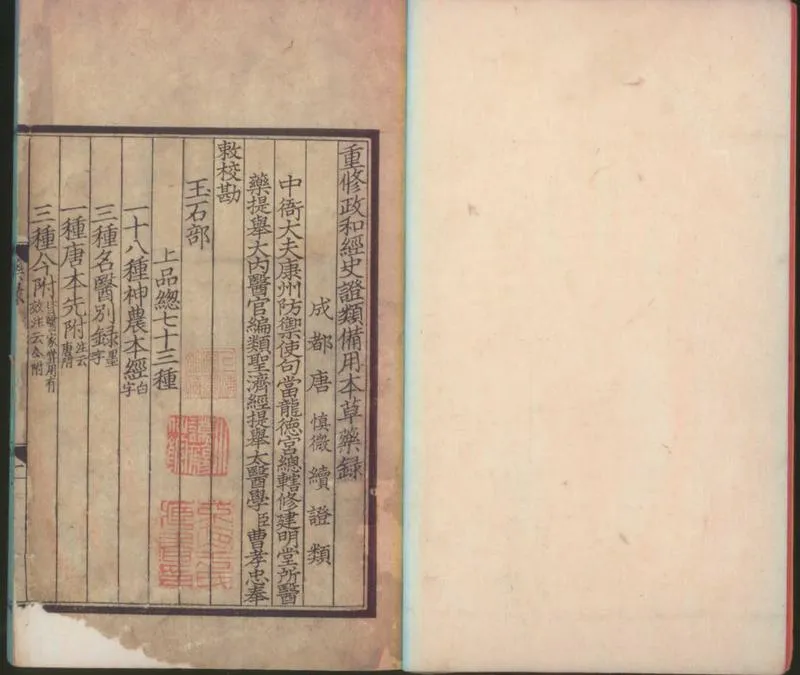 重修政和經史證類備用本草藥録
成都唐慎微續證類
中衛大夫康州防禦使句當龍德宮總轄修建明堂所醫
藥提舉大内醫官編類聖濟經提舉太醫學臣曹孝忠奉
敕校勘
玉石部
上品總七十三種
一十八種神農本經白字
三種名醫別録墨字
一種唐本先附注云唐附
三種今附皆醫家嘗用有效注云今附